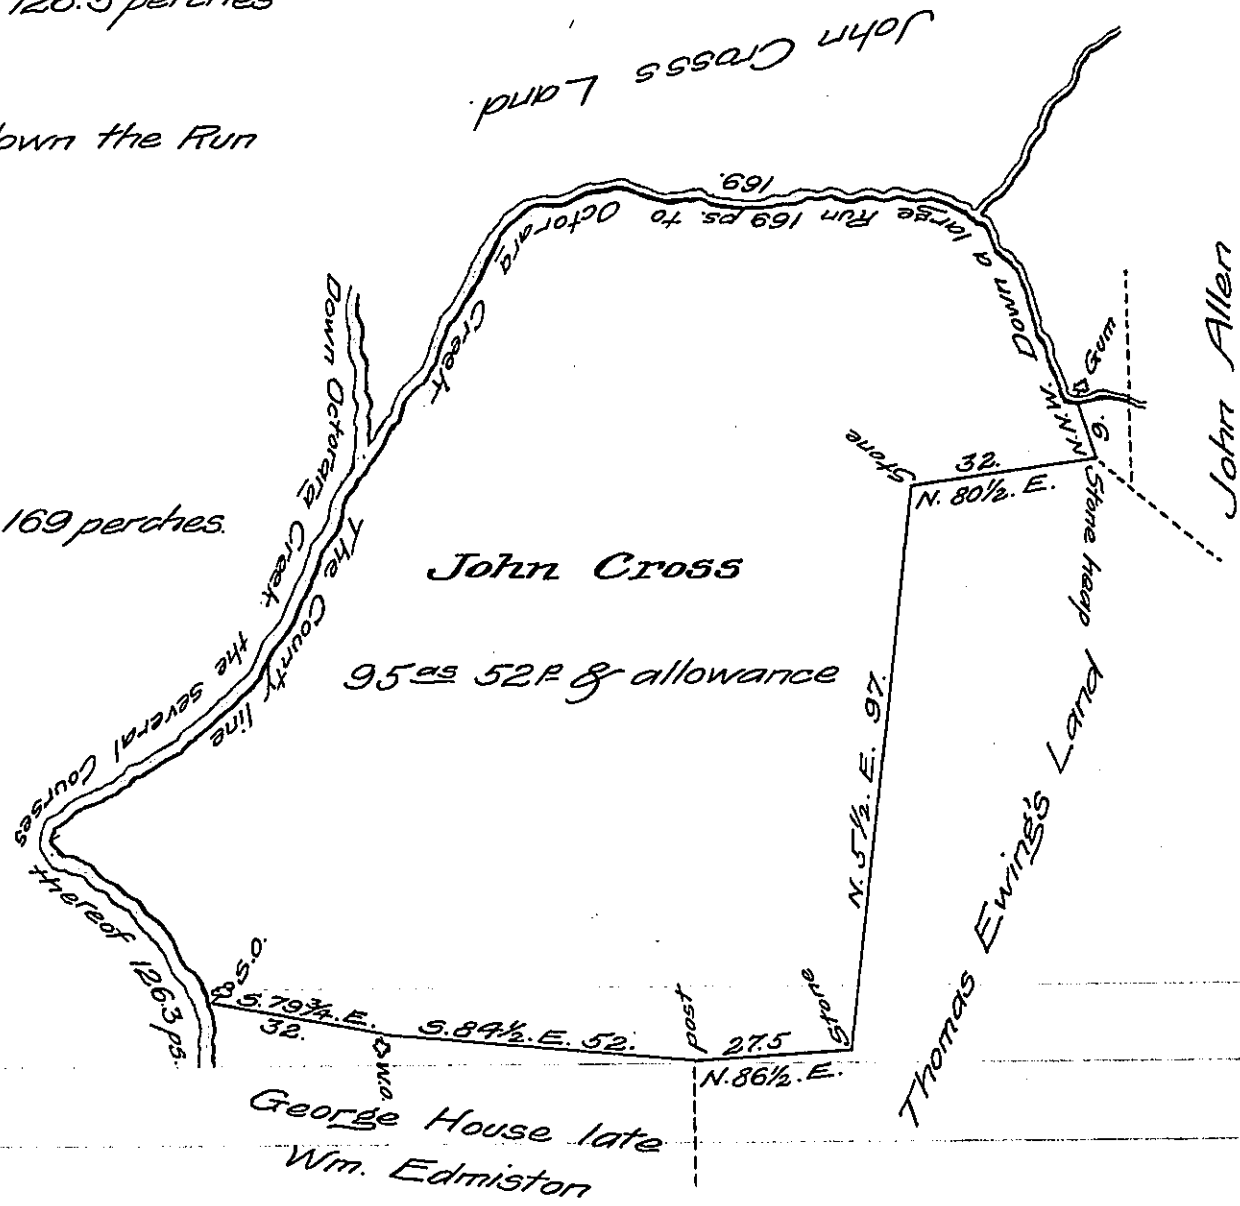 126.3 perches
John Cross's Land.
down the Run
169.
Down a large Run 169 ps. to Octorara Creek
Down Octorara Creek the several Courses thereof 126.3 ps.
The County line
John Allen
Gum
N.N.W. 9.
Stone
32.
N. 80½. E.
Stone heap
169 perches.
John Cross
95 as 52 P & allowance
N. 5½. E. 97.
Thomas Ewing's Land
S.O.
S. 79¾. E.
32.
W.O.
S. 84½. E. 52.
post
27.5
N. 86½. E.
Stone
George House late
Wm. Edmiston